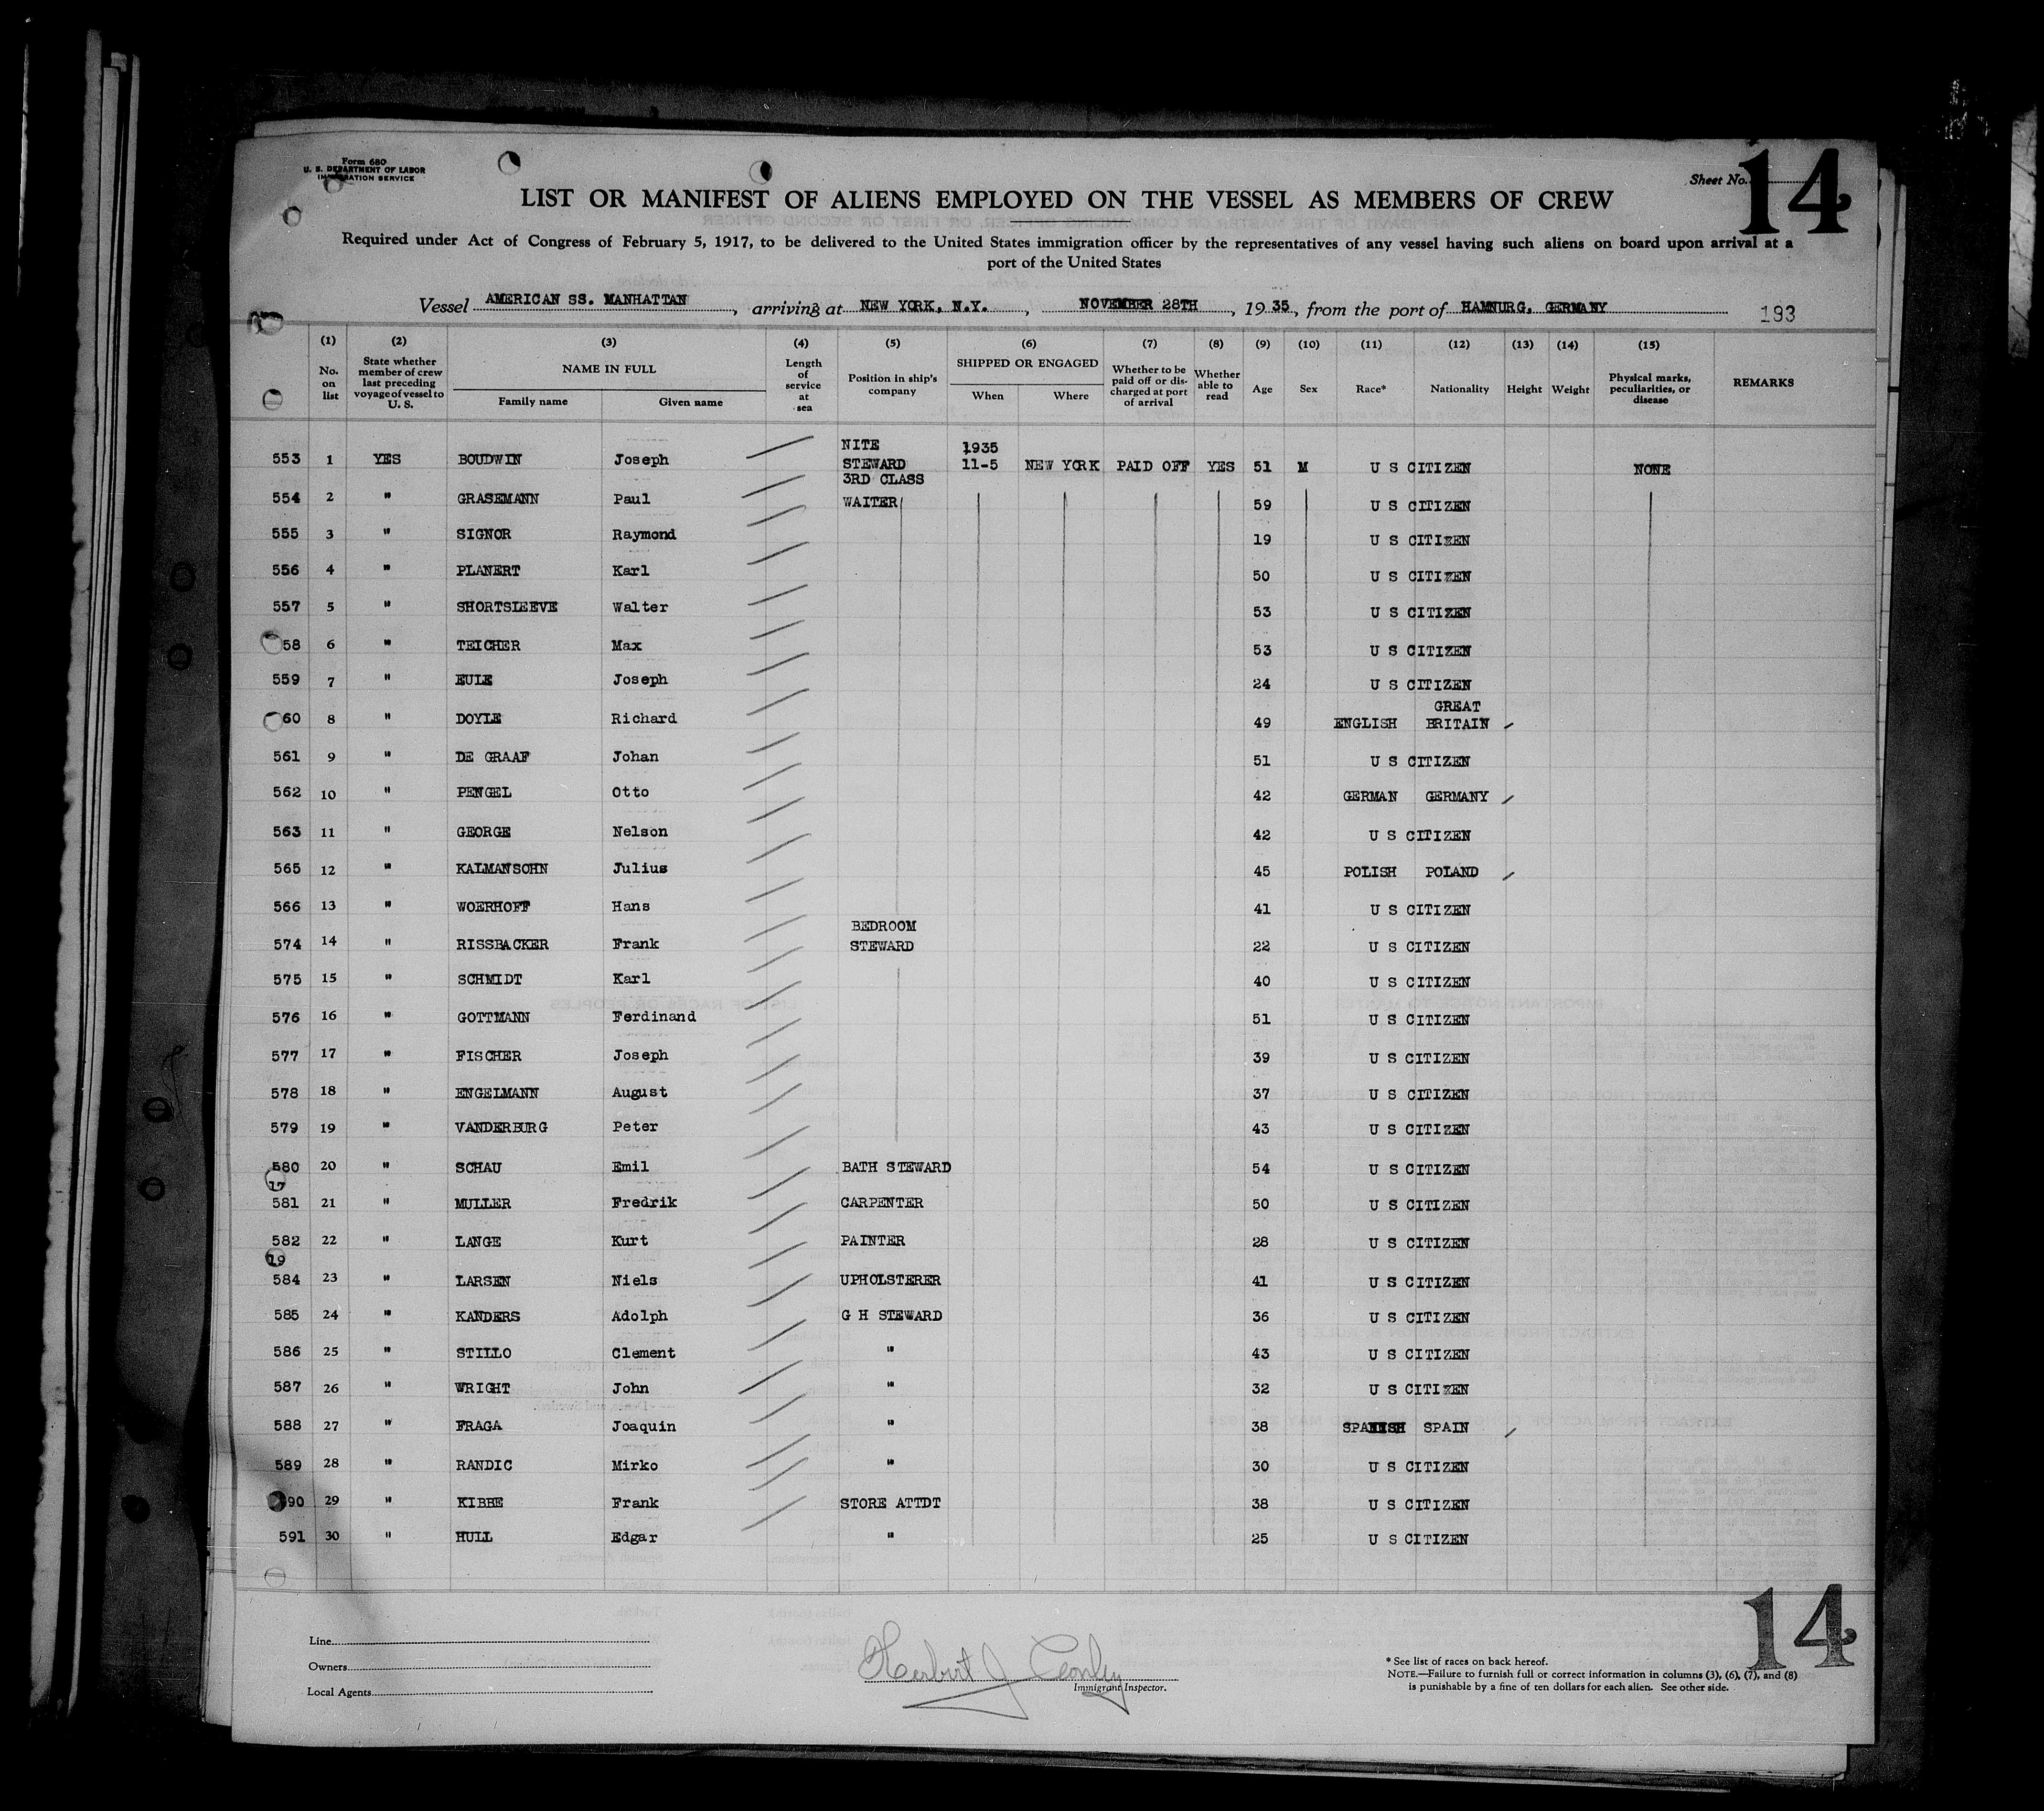 Form 680
U. S. DEPARTMENT OF LABOR
IMMIGRATION SERVICE
Sheet No. 14
LIST OR MANIFEST OF ALIENS EMPLOYED ON THE VESSEL AS MEMBERS OF CREW
Required under Act of Congress of February 5, 1917, to be delivered to the United States immigration officer by the representatives of any vessel having such aliens on board upon arrival at a
port of the United States
Vessel AMERICAN SS. MANHATTAN, arriving at NEW YORK, N.Y., NOVEMBER 28TH, 1935, from the port of HAMNURG, GERMANY 193
(1) No. on list
(2) State whether member of crew last preceding voyage of vessel to U. S.
(3) NAME IN FULL Family name Given name
(4) Length of service at sea
(5) Position in ship's company
(6) SHIPPED OR ENGAGED When Where
(7) Whether to be paid off or discharged at port of arrival
(8) Whether able to read
(9) Age
(10) Sex
(11) Race*
(12) Nationality
(13) Height
(14) Weight
(15) Physical marks, peculiarities, or disease
REMARKS
553 1 YES BOUDWIN Joseph NITE STEWARD 1935 11-5 NEW YORK PAID OFF YES 51 M U S CITIZEN NONE
554 2 " GRASEMANN Paul 3RD CLASS WAITER 59 U S CITIZEN
555 3 " SIGNOR Raymond 19 U S CITIZEN
556 4 " PLANERT Karl 50 U S CITIZEN
557 5 " SHORTSLEEVE Walter 53 U S CITIZEN
58 6 " TEICHER Max 53 U S CITIZEN
559 7 " EULE Joseph 24 U S CITIZEN
60 8 " DOYLE Richard 49 ENGLISH GREAT BRITAIN
561 9 " DE GRAAF Johan 51 U S CITIZEN
562 10 " PENGEL Otto 42 GERMAN GERMANY
563 11 " GEORGE Nelson 42 U S CITIZEN
565 12 " KALMANSOHN Julius 45 POLISH POLAND
566 13 " WOERHOFF Hans 41 U S CITIZEN
574 14 " RISSBACKER Frank BEDROOM STEWARD 22 U S CITIZEN
575 15 " SCHMIDT Karl 40 U S CITIZEN
576 16 " GOTTMANN Ferdinand 51 U S CITIZEN
577 17 " FISCHER Joseph 39 U S CITIZEN
578 18 " ENGELMANN August 37 U S CITIZEN
579 19 " VANDERBURG Peter 43 U S CITIZEN
580 20 " SCHAU Emil BATH STEWARD 54 U S CITIZEN
17
581 21 " MULLER Fredrik CARPENTER 50 U S CITIZEN
582 22 " LANGE Kurt PAINTER 28 U S CITIZEN
19
584 23 " LARSEN Niels UPHOLSTERER 41 U S CITIZEN
585 24 " KANDERS Adolph G H STEWARD 36 U S CITIZEN
586 25 " STILLO Clement " 43 U S CITIZEN
587 26 " WRIGHT John " 32 U S CITIZEN
588 27 " FRAGA Joaquin " 38 SPANISH SPAIN
589 28 " RANDIC Mirko " 30 U S CITIZEN
90 29 " KIBBE Frank STORE ATTDT 38 U S CITIZEN
591 30 " HULL Edgar " 25 U S CITIZEN
14
Line
Owners
Local Agents
Herbert J Conley
Immigrant Inspector.
* See list of races on back hereof.
NOTE.—Failure to furnish full or correct information in columns (3), (6), (7), and (8)
is punishable by a fine of ten dollars for each alien. See other side.